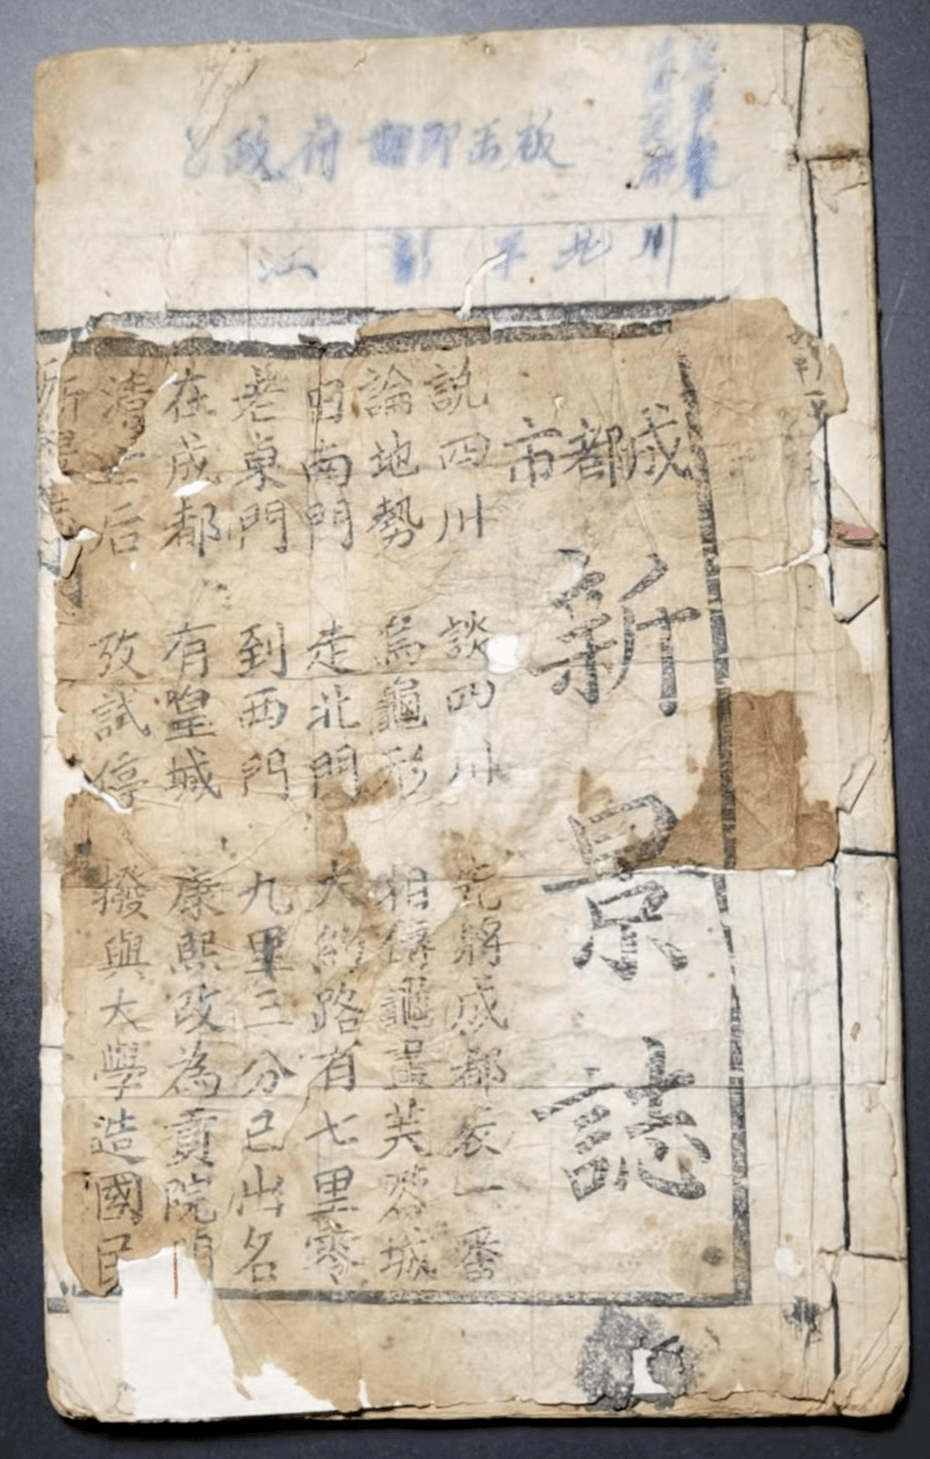 政府翻印出板
江彰平北川
成都市
新景誌
説四川 談四川 先將成都表一番
論地勢 爲龜形 相傳謳畫芙蓉城
由南門 走北門 大約路有七里零
老東門 到西門 九里三分已出名
在成都 有皇城 康熙改為貢院門
后 攷試停 撥與大學造國民